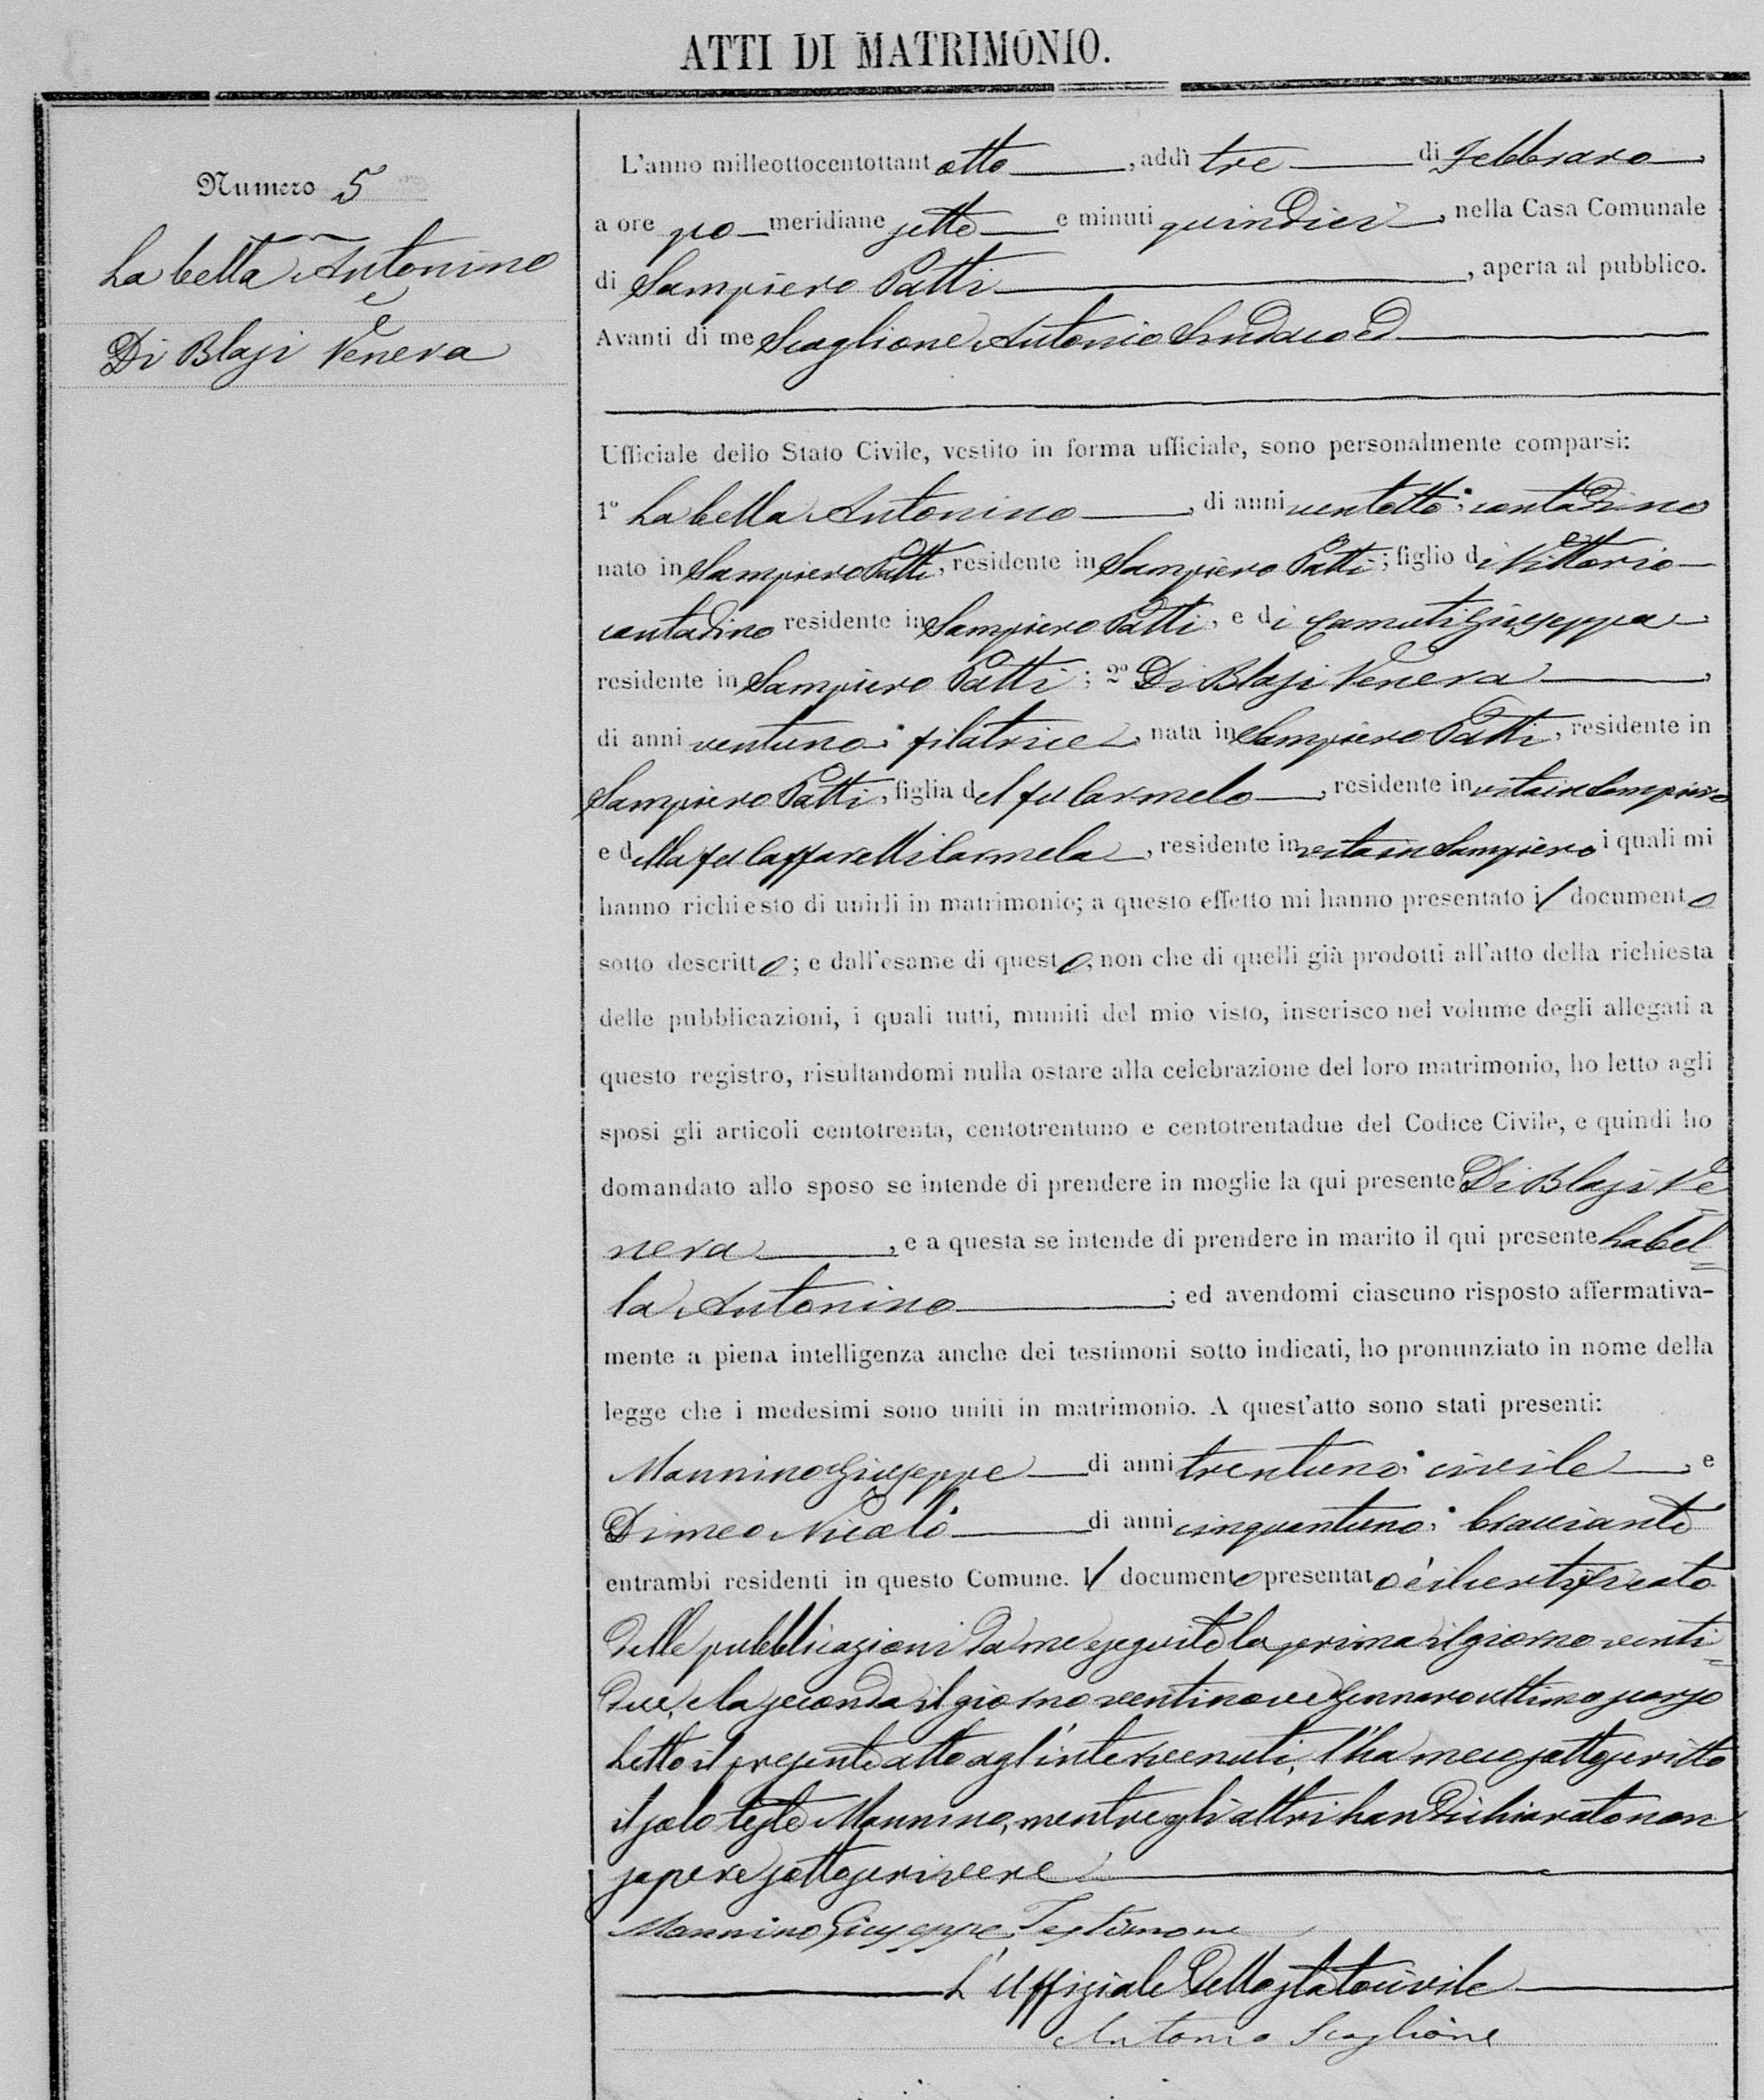 ATTI DI MATRIMONIO.
Numero 5
La bella Antonino
e
Di Blasi Venera
L'anno milleottocentottant otto, addì tre di Febbraro,
a ore po meridiane sette e minuti quindici, nella Casa Comunale
di Sampiero Patti, aperta al pubblico.
Avanti di me Scaglione Antonio Sindaco ed
Ufficiale dello Stato Civile, vestito in forma ufficiale, sono personalmente comparsi:
1º La bella Antonino, di anni ventotto; contadino
nato in Sampiero Patti, residente in Sampiero Patti; figlio di Vittorio
contadino residente in Sampiero Patti, e di Camuti Giuseppa
residente in Sampiero Patti; 2º Di Blasi Venera,
di anni ventuno; filatrice, nata in Sampiero Patti, residente in
Sampiero Patti, figlia del fu Carmelo, residente in vita in Sampiero
e della fu Caffarelli Carmela, residente in vita in Sampiero i quali mi
hanno richiesto di unirli in matrimonio; a questo effetto mi hanno presentato il documento
sotto descritto; e dall'esame di questo, non che di quelli già prodotti all'atto della richiesta
delle pubblicazioni, i quali tutti, muniti del mio visto, inserisco nel volume degli allegati a
questo registro, risultandomi nulla ostare alla celebrazione del loro matrimonio, ho letto agli
sposi gli articoli centotrenta, centotrentuno e centotrentadue del Codice Civile, e quindi ho
domandato allo sposo se intende di prendere in moglie la qui presente Di Blasi Ve
nera, e a questa se intende di prendere in marito il qui presente Label=
la Antonino; ed avendomi ciascuno risposto affermativa-
mente a piena intelligenza anche dei testimoni sotto indicati, ho pronunziato in nome della
legge che i medesimi sono uniti in matrimonio. A quest'atto sono stati presenti:
Mannino Giuseppe di anni trentuno; civile, e
Dimeo Nicolò di anni cinquantuno; bracciante
entrambi residenti in questo Comune. Il documento presentato è il certificato
delle pubblicazioni da me eseguite la prima il giorno venti=
due, e la seconda il giorno ventinove Gennaro ultimo scorso
Letto il presente atto agl'intervenuti, l'ha meco sottoscritto
il solo teste Mannino, mentre gli altri han dichiarato non
sapere sottoscrivere
Mannino Giuseppe Testimone
L'Uffiziale dello stato civile
Antonio Scaglione